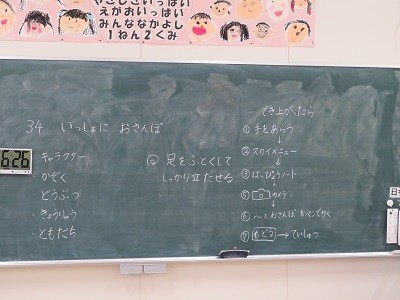 やさしさいっぱい
えがおいっぱい
みんななかよし
1ねん2くみ
34 いっしょに おさんぽ
6:26
キャラクター
・かぞく
・どうぶつ
・きょうりゅう
・ともだち
足をふとくして
しっかり立たせる
でき上がったら
① 手をあらう
② スカイメニュー
↓
③ はっぴょうノート
↓
カメラ
〜とおさんぽ
もどう → ていしゅつ
日